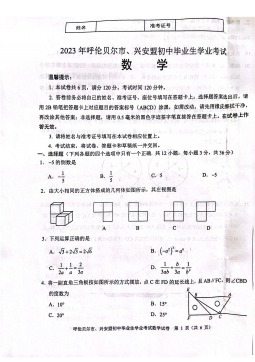 姓名 准考证号
2023 年呼伦贝尔市、兴安盟初中毕业生学业考试
数 学
温馨提示：
1. 本试卷共 6 页，满分 120 分，考试时间 120 分钟。
2. 答卷前务必将自己的姓名、准考证号、座位号填写在答题卡上，选择题答案选出后，请
用 2B 铅笔把答题卡上对应题目的答案标号（ABCD）涂黑，如需改动，请先用橡皮擦拭干净，
再改涂其他答案；非选择题，请用 0.5 毫米的黑色字迹签字笔直接答在答题卡上，在试卷上作
答无效。
3. 请将姓名与准考证号填写在本试卷相应位置上。
4. 考试结束，将试卷、答题卡和草稿纸一并交回。
一、选择题（下列各题的四个选项中只有一个正确. 共 12 小题，每小题 3 分，共 36 分）
1. −5 的倒数是
A. −1/5 B. 1/5 C. 5 D. −5
2. 由大小相同的正方体搭成的几何体如图所示，其左视图是
A B C D
3. 下列运算正确的是
A. √3+2√3=2√6 B. (−a²)³=−a⁶
C. 1/2a+1/a=2/3a D. 1/3ab÷b/3a=1/b²
4. 将一副直角三角板按如图所示的方式摆放，点 C 在 FD 的延长线上，且 AB∥FC，则∠CBD
的度数为
A. 10° B. 15°
C. 20° D. 25°
呼伦贝尔市、兴安盟初中毕业生学业考试数学试卷 第 1 页（共 6 页）